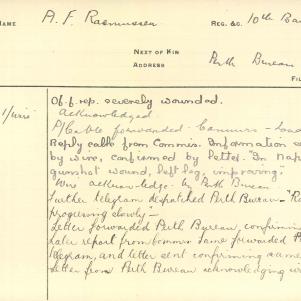 NAME A. F. Rasmussen REG. &C. 10th Ba
NEXT OF KIN
ADDRESS Perth Bureau
FI
Of. f. rep. severely wounded.
Acknowledged
Cable forwarded
Reply cable from Commis. Information
by wire, confirmed by letter. In
gunshot wound, left leg, improving;
Wire acknowledge by Perth Bureau
Further telegram despatched Perth Bureau
Progressing slowly-
Letter forwarded Perth Bureau, confirmin
Later report from Commr same forwarded
telegram, and letter sent confirming same
Letter from Perth Bureau acknowledging